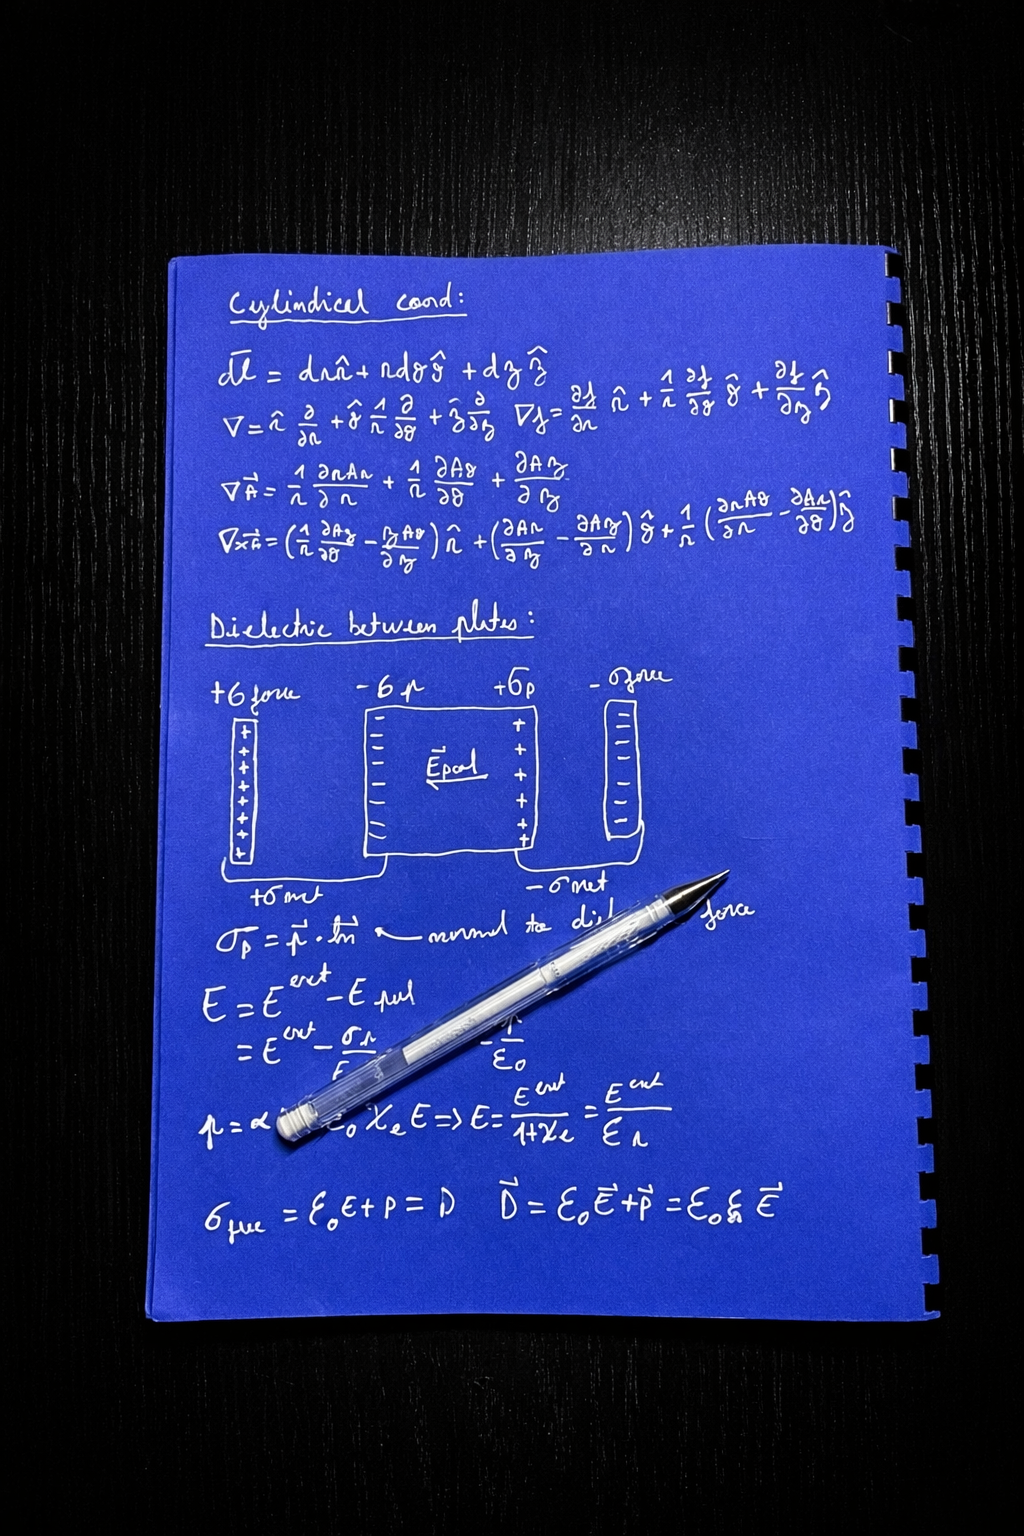 Cylindical coord:
d̅l̅ = drr̂ + rdθθ̂ + dzẑ
∇ = r̂ ∂/∂r + θ̂ 1/r ∂/∂θ + ẑ ∂/∂z   ∇f = ∂f/∂r r̂ + 1/r ∂f/∂θ θ̂ + ∂f/∂z ẑ
∇A⃗ = 1/r ∂rAr/∂r + 1/r ∂Aθ/∂θ + ∂Az/∂z
∇×A⃗ = (1/r ∂Az/∂θ - zAθ/∂z) r̂ + (∂Ar/∂z - ∂Az/∂r) θ̂ + 1/r (∂rAθ/∂r - ∂Ar/∂θ) ẑ
Dielectric between plates:
+σ force   -σ p   +σp   -σ force
E⃗pol
+σ net   -σ net
σp = p⃗ · n⃗ ← normal to surface
E = E^ext - E pol
= E^ext - σp/ε   - p/ε₀
p = α ε₀ χe E => E = E^ext/1+χe = E^ext/εr
σfree = ε₀E + P = D   D⃗ = ε₀E⃗ + p⃗ = ε₀εr E⃗